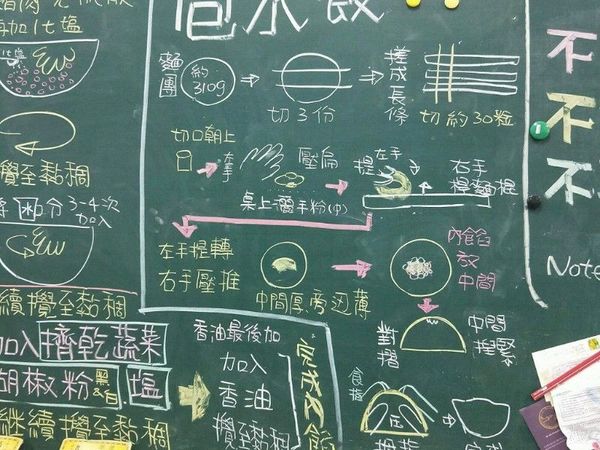 再加1匕鹽
1匕鹽
攪至黏稠
3~4次
加入
繼續攪至黏稠
加入擠乾蔬菜
胡椒粉黑&白.鹽
繼續攪至黏稠
包水餃
麵團
約310g
切3份
搓成長條
切約30粒
切口朝上
左手
壓扁
桌上灑手粉(中)
左手
提
右手
左手提轉
右手壓推
中間厚.旁边薄
內餡放中間
對摺
中間捏緊
食指
香油最後加
加入
香油
攪至黏稠
完成內餡
不
不
不
Note